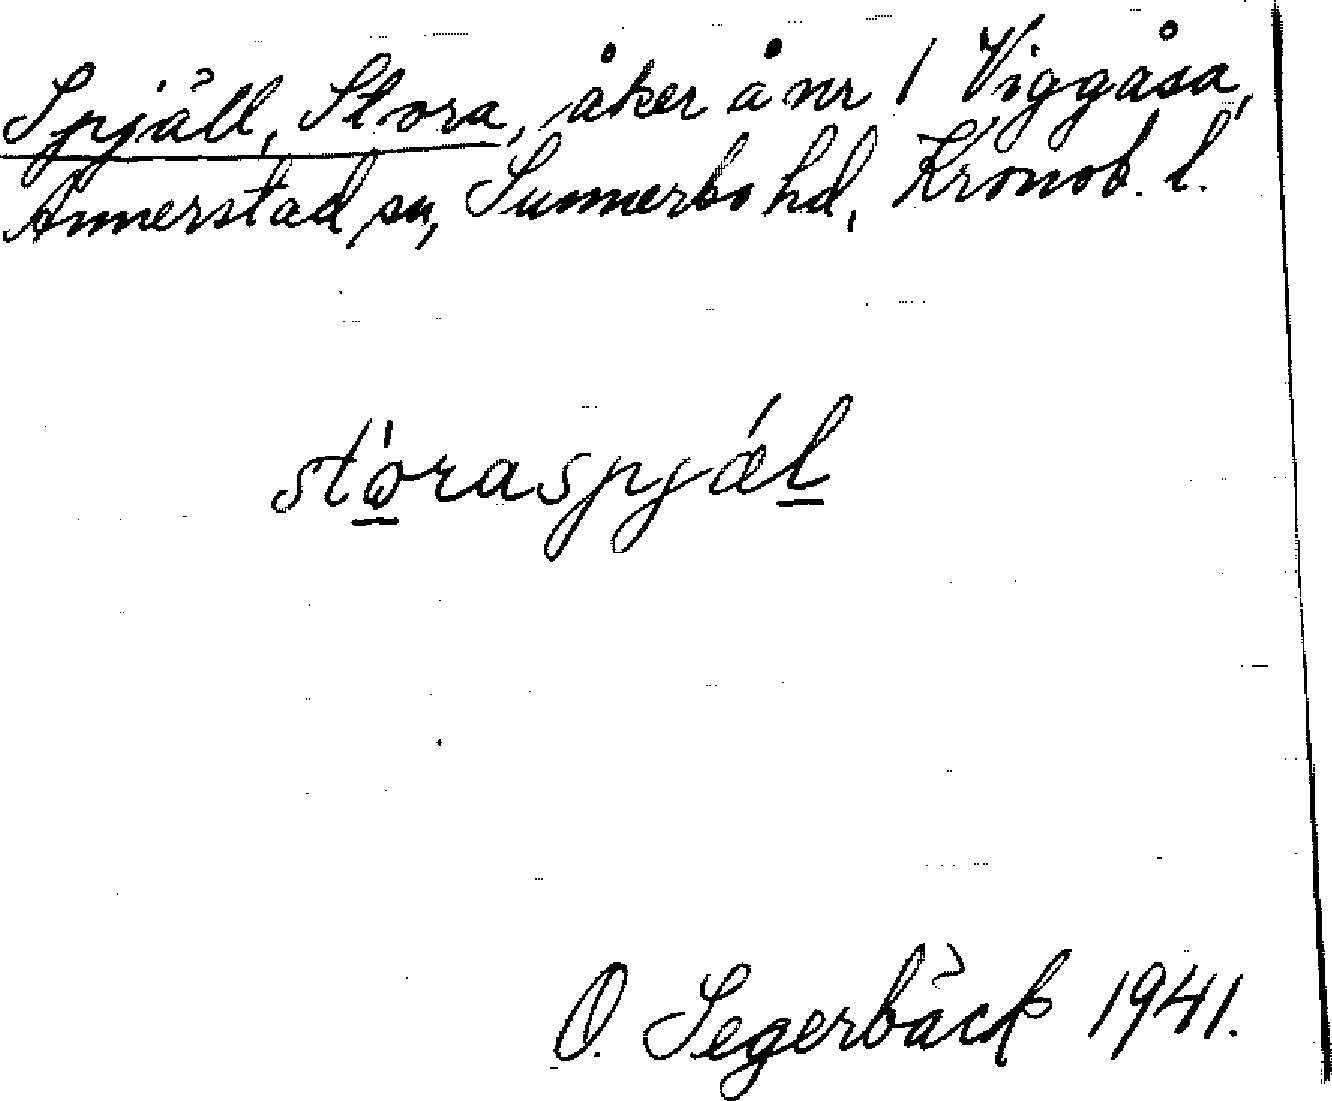 Spjäll, Stora, åker å nr 1 Viggåsa,
Annerstad sn, Sunnerbo hd, Kronob. l.
stòraspjǽl
O. Segerbäck 1941.